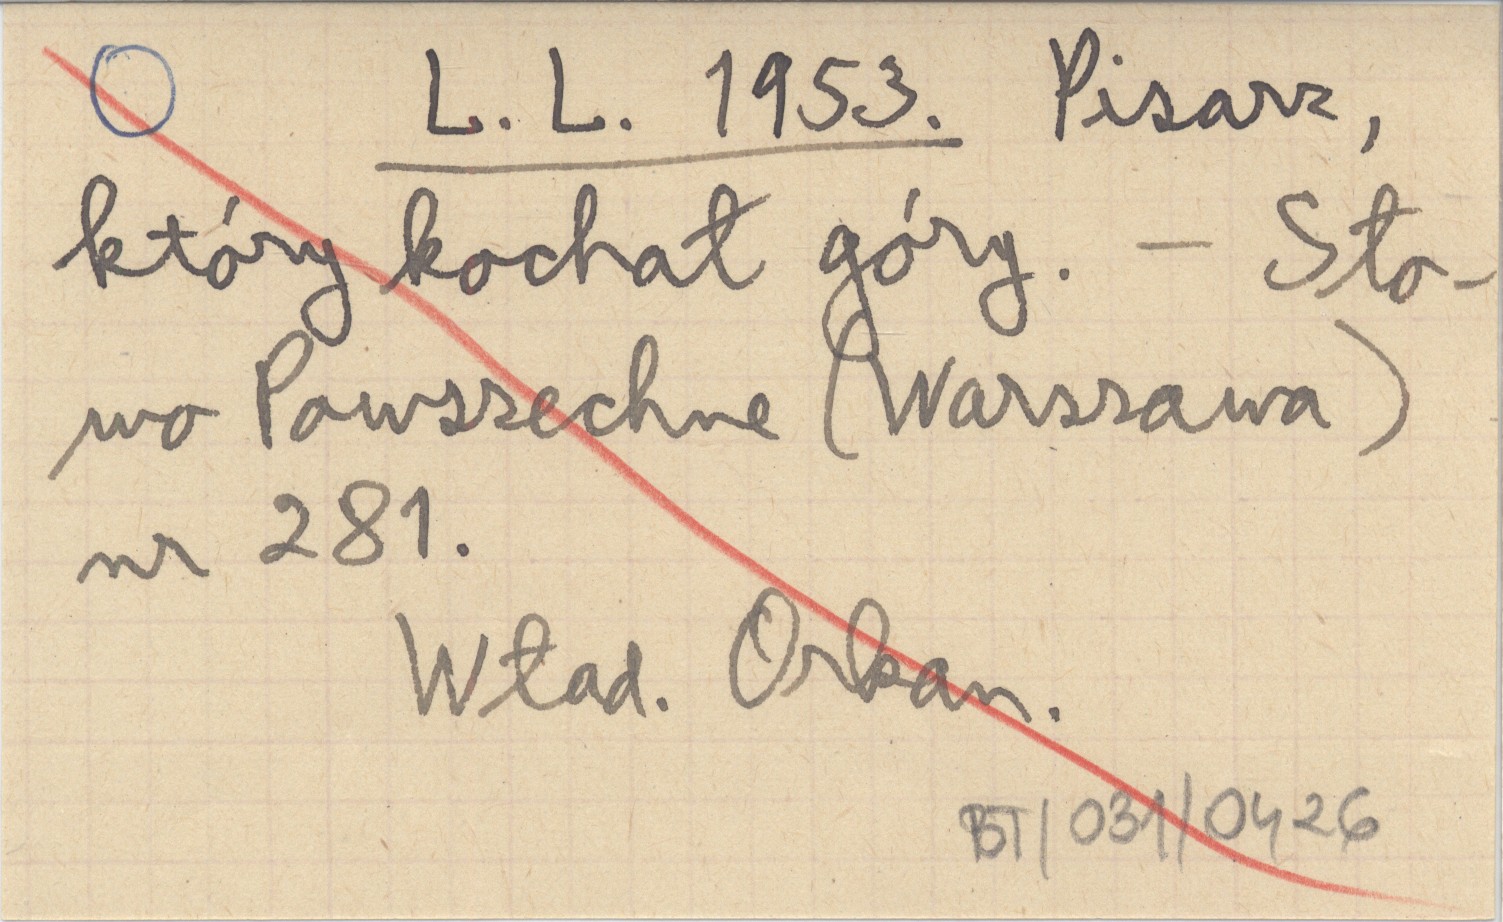 L. L. 1953. Pisarz,
który kochał góry. – Sło-
wo Powszechne (Warszawa)
nr 281.
Wład. Orkan.
BT/031/0426